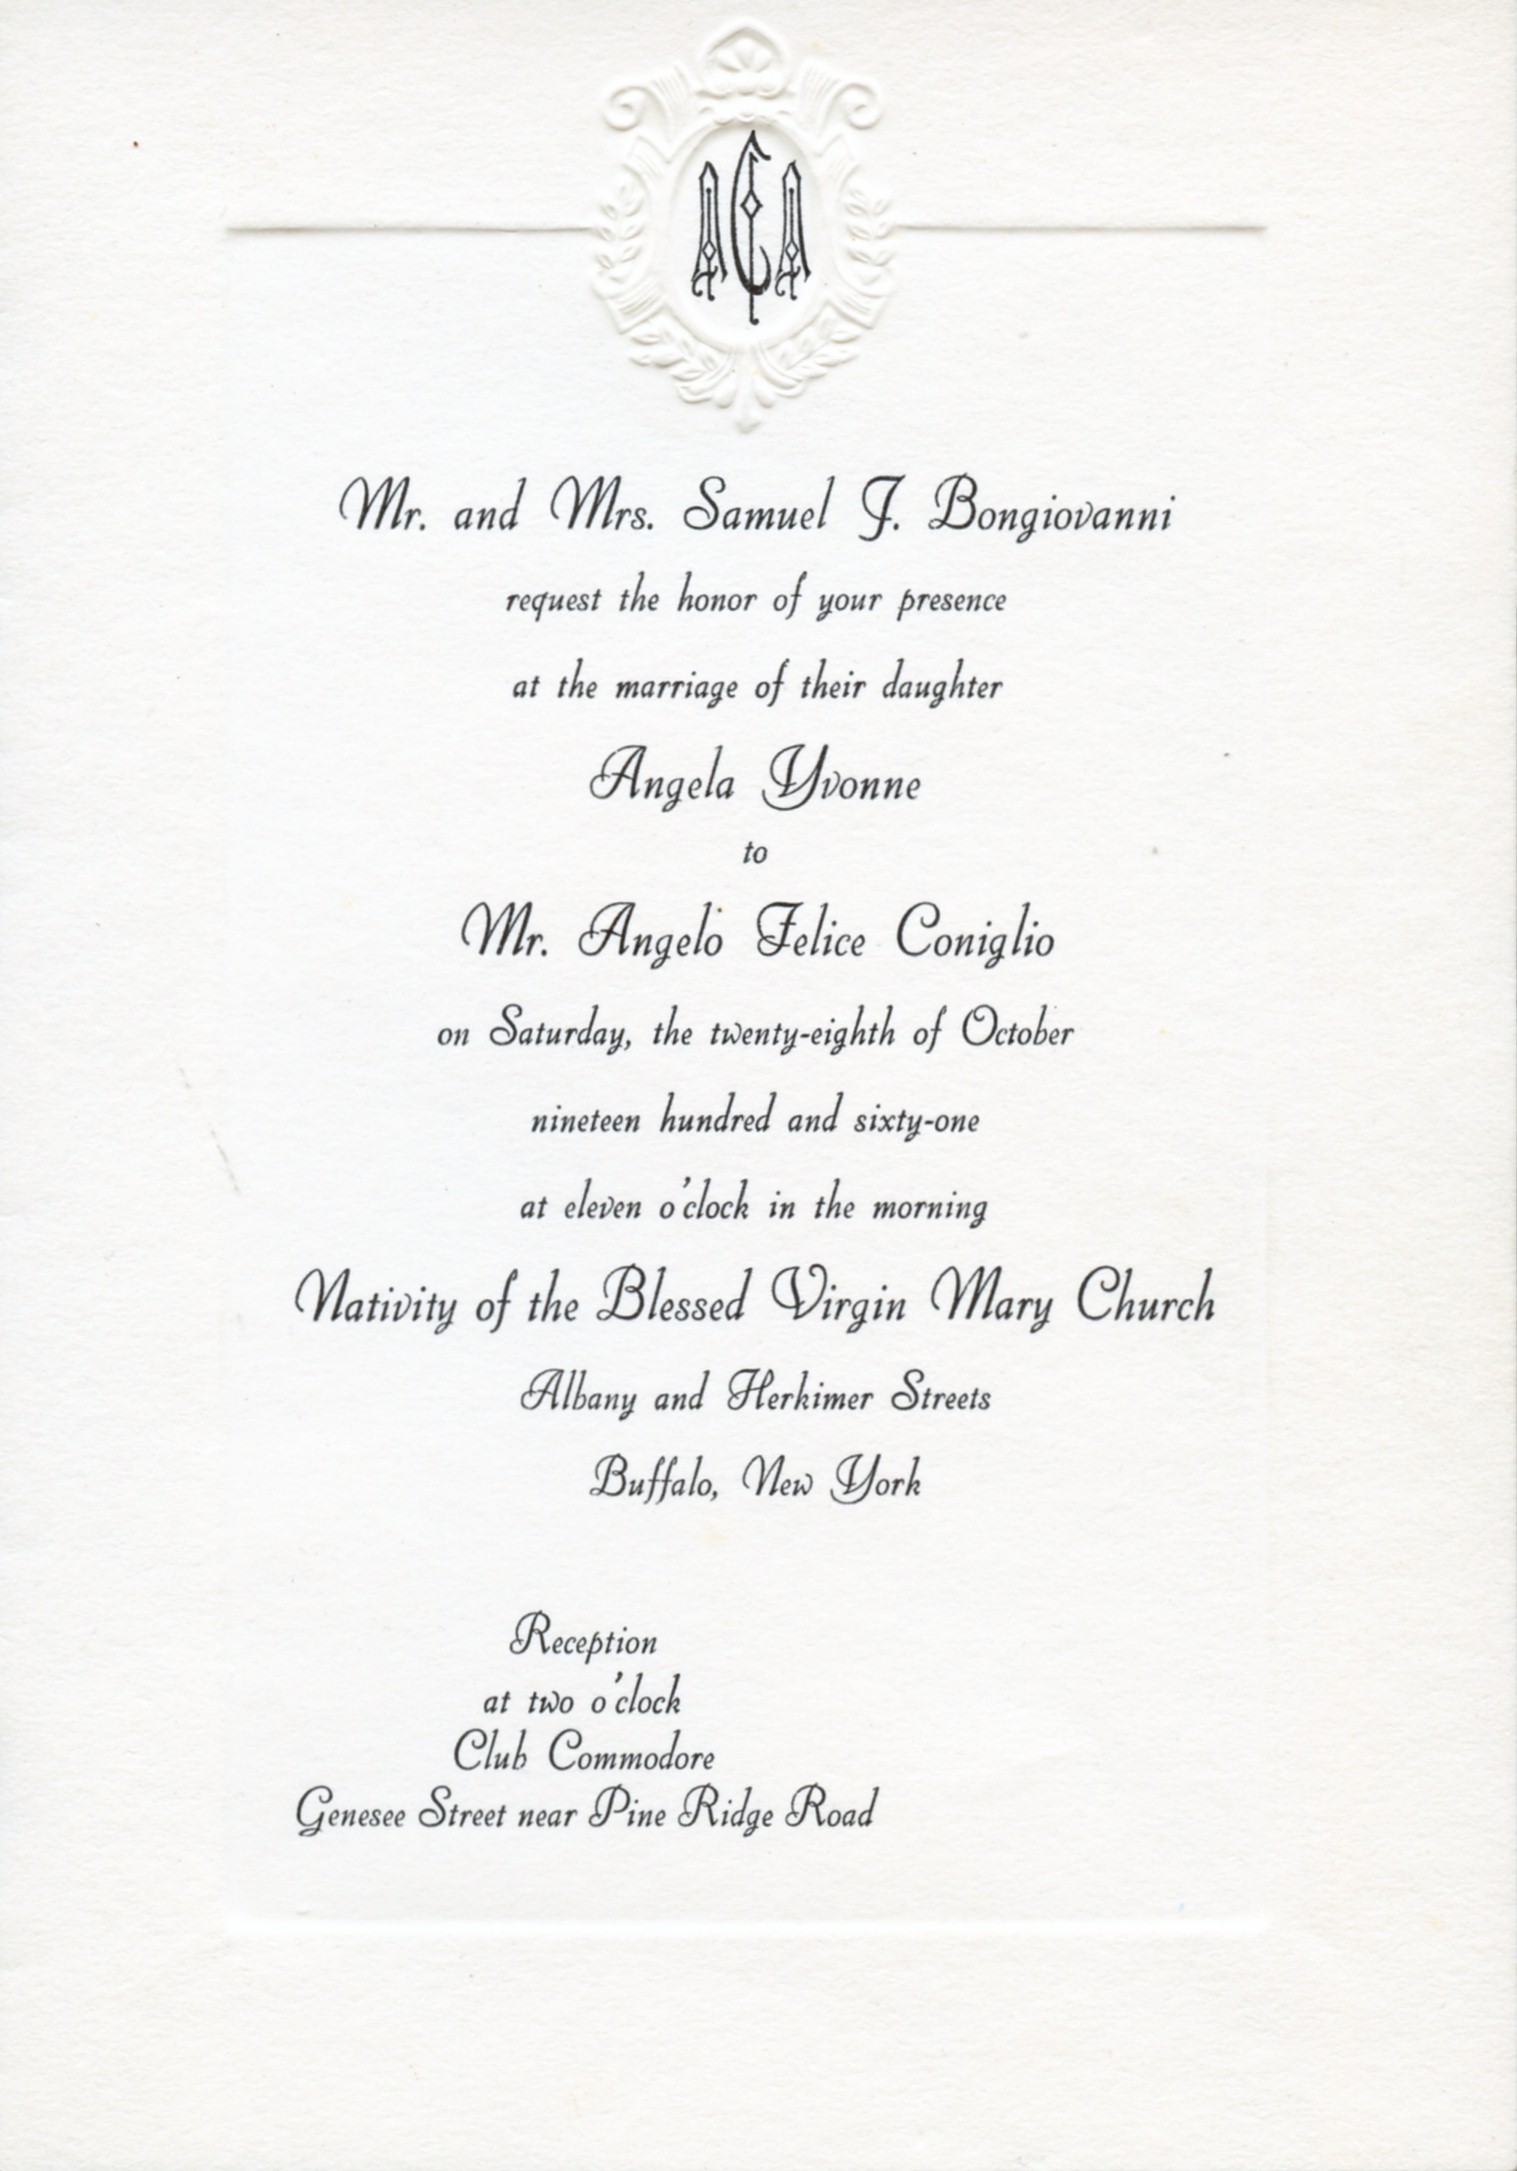 ACA
Mr. and Mrs. Samuel J. Bongiovanni
request the honor of your presence
at the marriage of their daughter
Angela Yvonne
to
Mr. Angelo Felice Coniglio
on Saturday, the twenty-eighth of October
nineteen hundred and sixty-one
at eleven o'clock in the morning
Nativity of the Blessed Virgin Mary Church
Albany and Herkimer Streets
Buffalo, New York
Reception
at two o'clock
Club Commodore
Genesee Street near Pine Ridge Road